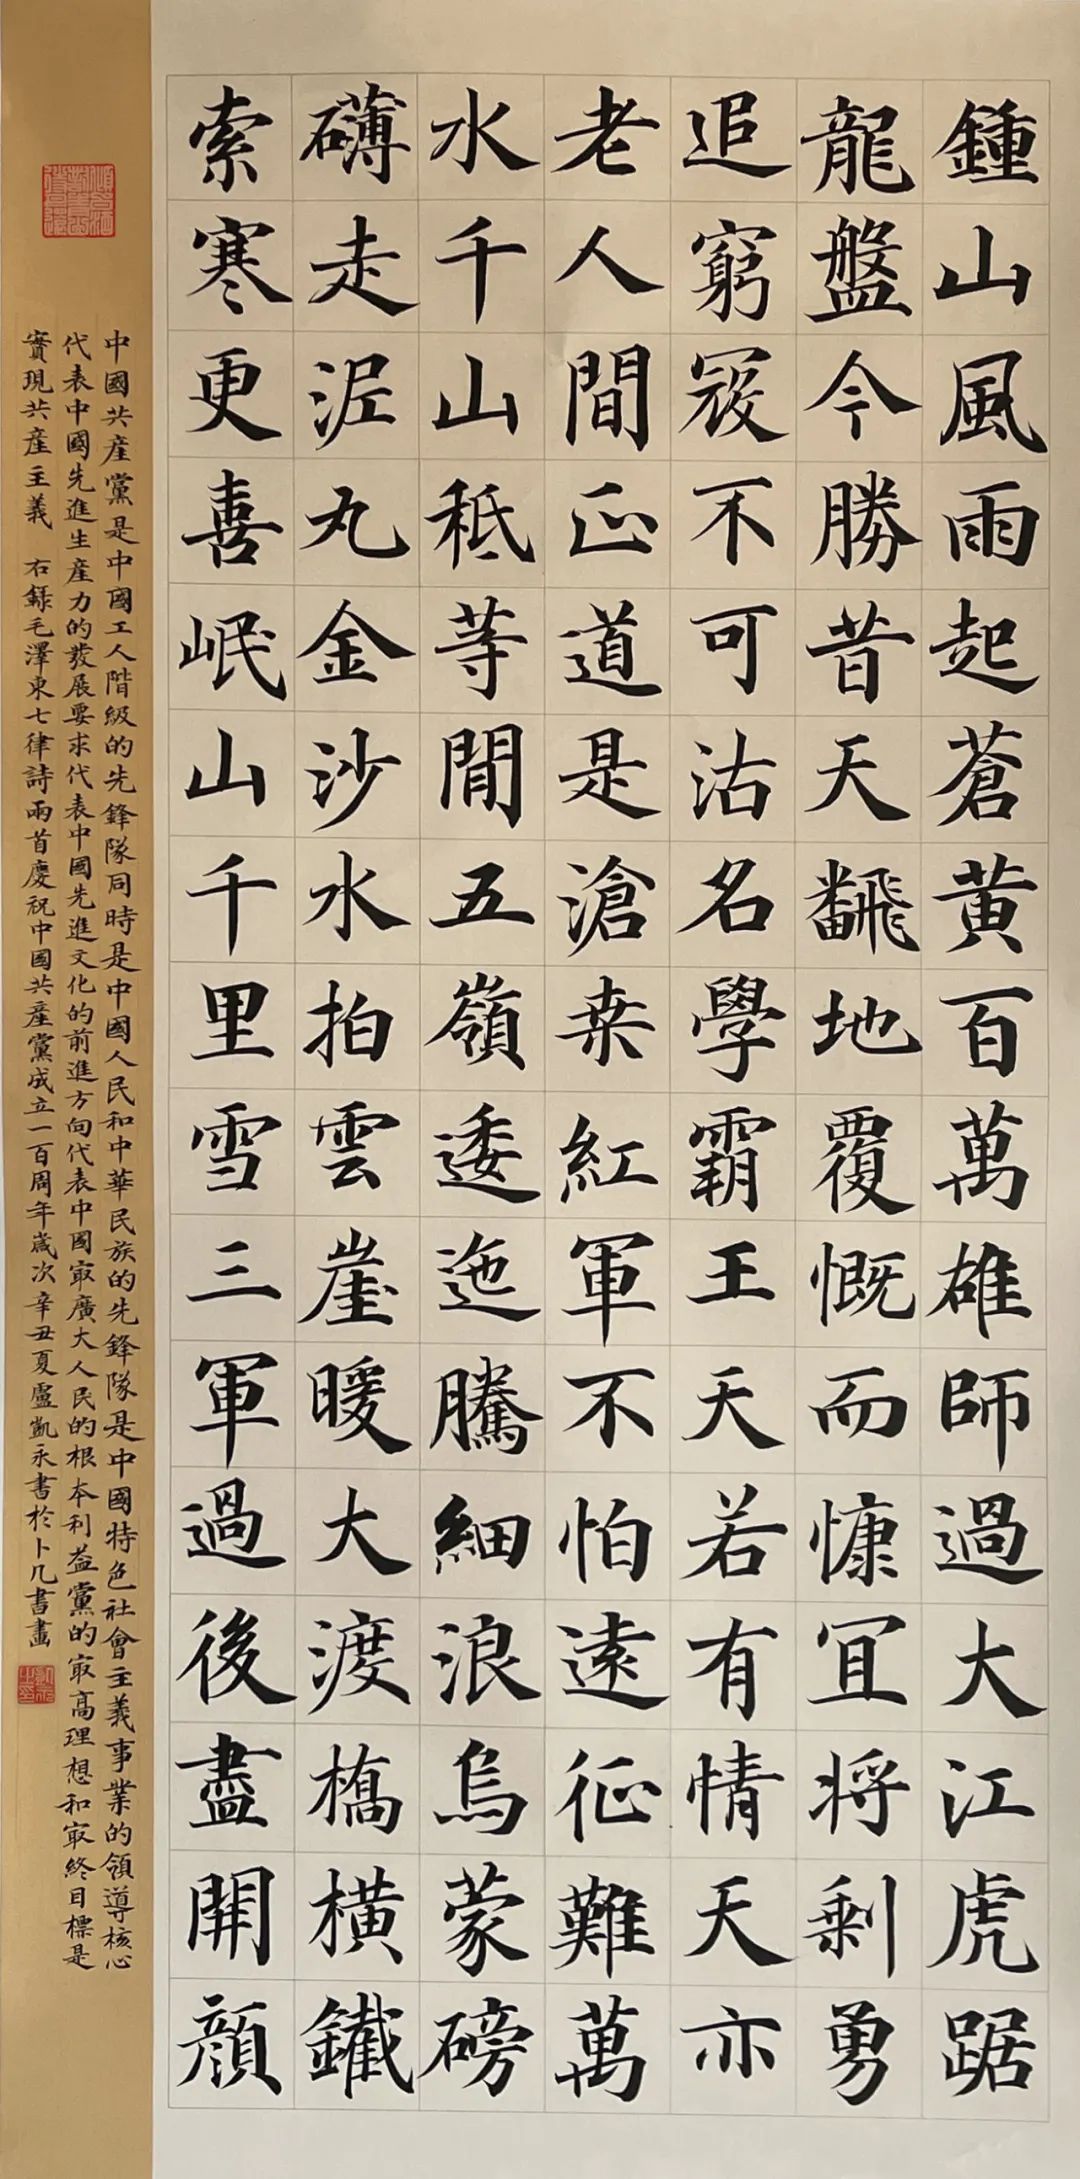 鍾山風雨起蒼黃百萬雄師過大江虎踞
龍盤今勝昔天飜地覆慨而慷宜將剩勇
追窮寇不可沽名學霸王天若有情天亦
老人間正道是滄桒紅軍不怕遠征難萬
水千山秪等閒五嶺逶迤騰細浪烏蒙磅
礴走泥丸金沙水拍雲崖暖大渡橋橫鐵
索寒更喜岷山千里雪三軍過後盡開顏
中國共產黨是中國工人階級的先鋒隊同時是中國人民和中華民族的先鋒隊是中國特色社會主義事業的領導核心
代表中國先進生產力的發展要求代表中國先進文化的前進方向代表中國冣廣大人民的根本利益黨的冣高理想和冣終目標是
實現共產主義 右錄毛澤東七律詩兩首慶祝中國共產黨成立一百周年歲次辛丑夏盧凱永書於卜凡書畫